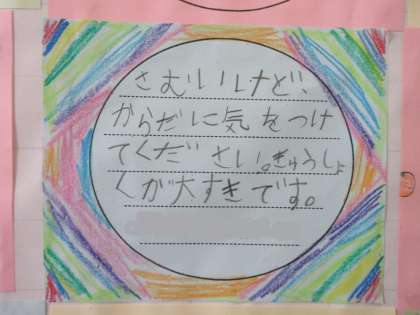 さむいけど、
からだに気をつけ
てください。きゅうしょ
くが大すきです。